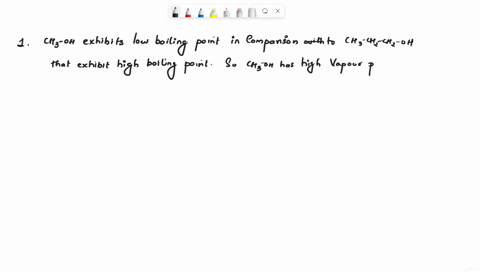 1. CH3-OH exhibits low boiling point in Comparison with to CH3-CH2-CH2-OH
that exhibit high boiling point. So CH3-OH has high Vapour p